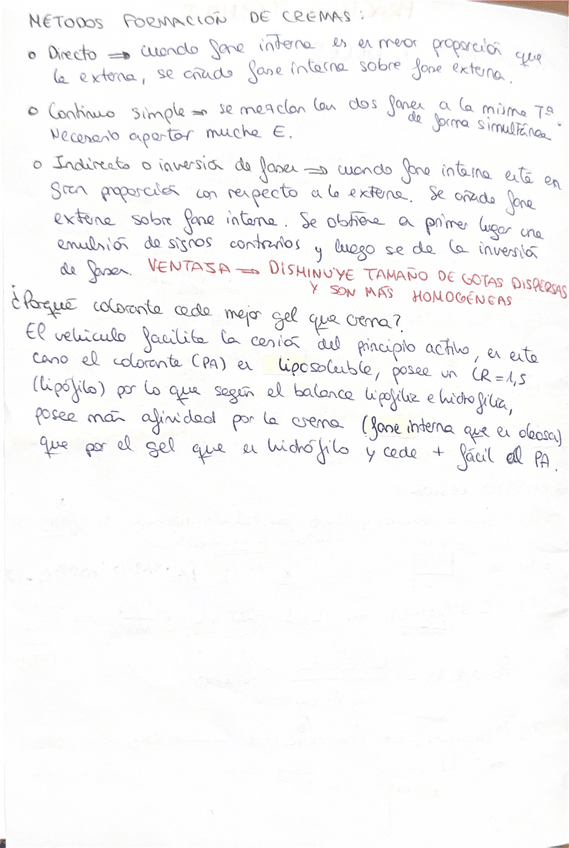 MÉTODOS FORMACIÓN DE CREMAS:
o Directo ⇒ cuando fase interna es en menor proporción que
la externa, se añade fase interna sobre fase externa.
o Continuo simple ⇒ se mezclan las dos fases a la misma Tª
de forma simultánea
Necesario aportar mucha E.
o Indirecto o inversión de fases ⇒ cuando fase interna está en
gran proporción con respecto a la externa. Se añade fase
externa sobre fase interna. Se obtiene a primer lugar una
emulsión de signos contrarios y luego se da la inversión
de fases. VENTAJA ⇒ DISMINUYE TAMAÑO DE GOTAS DISPERSAS
Y SON MÁS HOMOGÉNEAS
¿Porqué colorante cede mejor gel que crema?
El vehículo facilita la cesión del principio activo, en este
caso el colorante (PA) es liposoluble, posee un CR=1,5
(lipófilo) por lo que según el balance lipofilia e hidrofilia,
posee más afinidad por la crema (fase interna que es oleosa)
que por el gel que es hidrófilo y cede + fácil el PA.